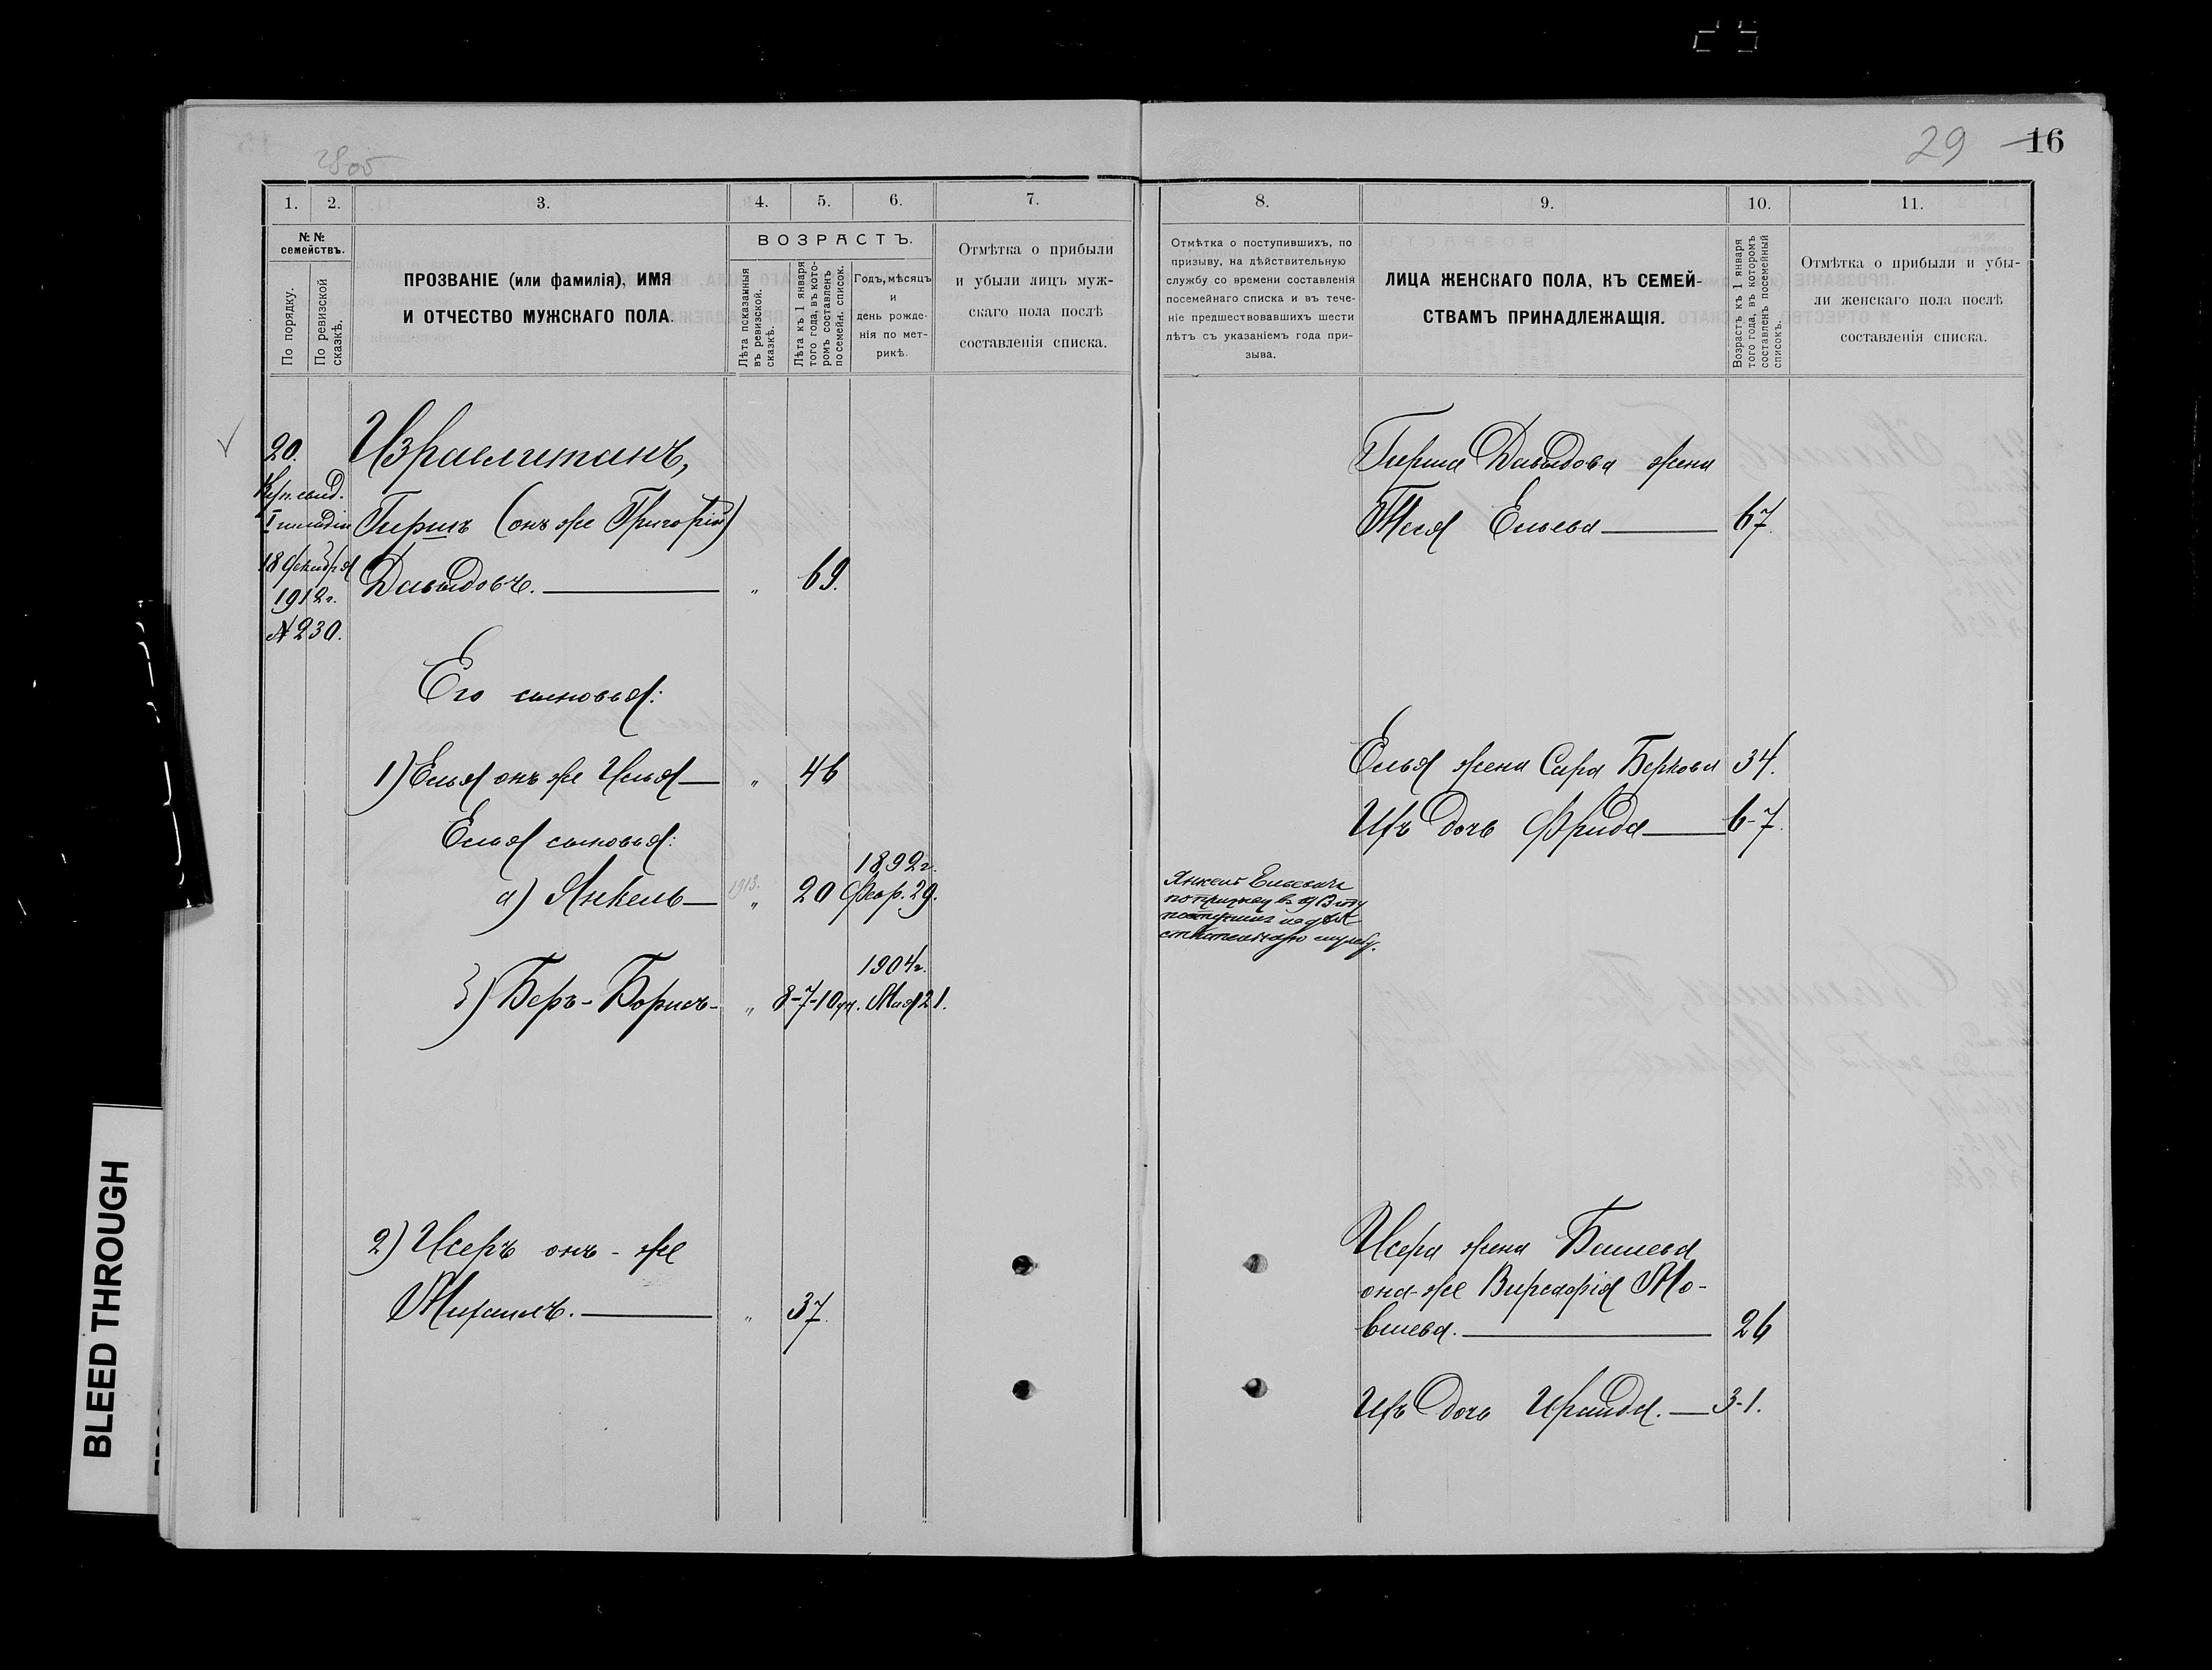 29 16
2805
1. 2. 3. 4. 5. 6. 7.
№ №
семействъ.
По порядку.
По ревизской
сказкѣ.
ПРОЗВАНІЕ (или фамилія), ИМЯ
И ОТЧЕСТВО МУЖСКАГО ПОЛА.
ВОЗРАСТЪ.
Лѣта показанныя
въ ревизской.
сказкѣ.
Лѣта къ 1 января
того года, въ кото-
ромъ составленъ
посемейн. список.
Годъ, мѣсяцъ
и
день рожде-
нія по мет-
рикѣ.
Отмѣтка о прибыли
и убыли лицъ муж-
скаго пола послѣ
составленія списка.
20.
Куп. свид.
I гильдіи
18 Декабря
1912 г.
№ 230.
Израелитанъ,
Гиршъ (онъ же Григорій)
Давыдовъ. — „ 69.
Его сыновья:
1) Елья онъ же Илья — „ 46
Елья сыновья:
1892 г.
а) Янкель — 1913. „ 20 Февр. 29.
1904 г.
б) Беръ-Борисъ- „ 8-7-10 дн. Мая 21.
2) Исеръ онъ-же
Михаилъ. — „ 37.
8. 9. 10. 11.
Отмѣтка о поступившихъ, по
призыву, на дѣйствительную
службу со времени составленія
посемейнаго списка и въ тече-
ніе предшествовавшихъ шести
лѣтъ съ указаніемъ года при-
зыва.
ЛИЦА ЖЕНСКАГО ПОЛА, КЪ СЕМЕЙ-
СТВАМЪ ПРИНАДЛЕЖАЩІЯ.
Возрастъ къ 1 января
того года, въ которомъ
составленъ посемейный
списокъ.
Отмѣтка о прибыли и убы-
ли женскаго пола послѣ
составленія списка.
Гирша Давыдова жена
Тася Ельева — 67.
Елья жена Сара Беркова 34.
Ихъ дочь Фрида — 6-7.
Янкель Ельевичъ
по призыву въ 1913 году
поступилъ на дѣй-
ствительную службу.
Исера жена Башева
она-же Вирсафія Мо-
вшева. — 26
Ихъ дочь Ираида. — 3-1.
BLEED THROUGH